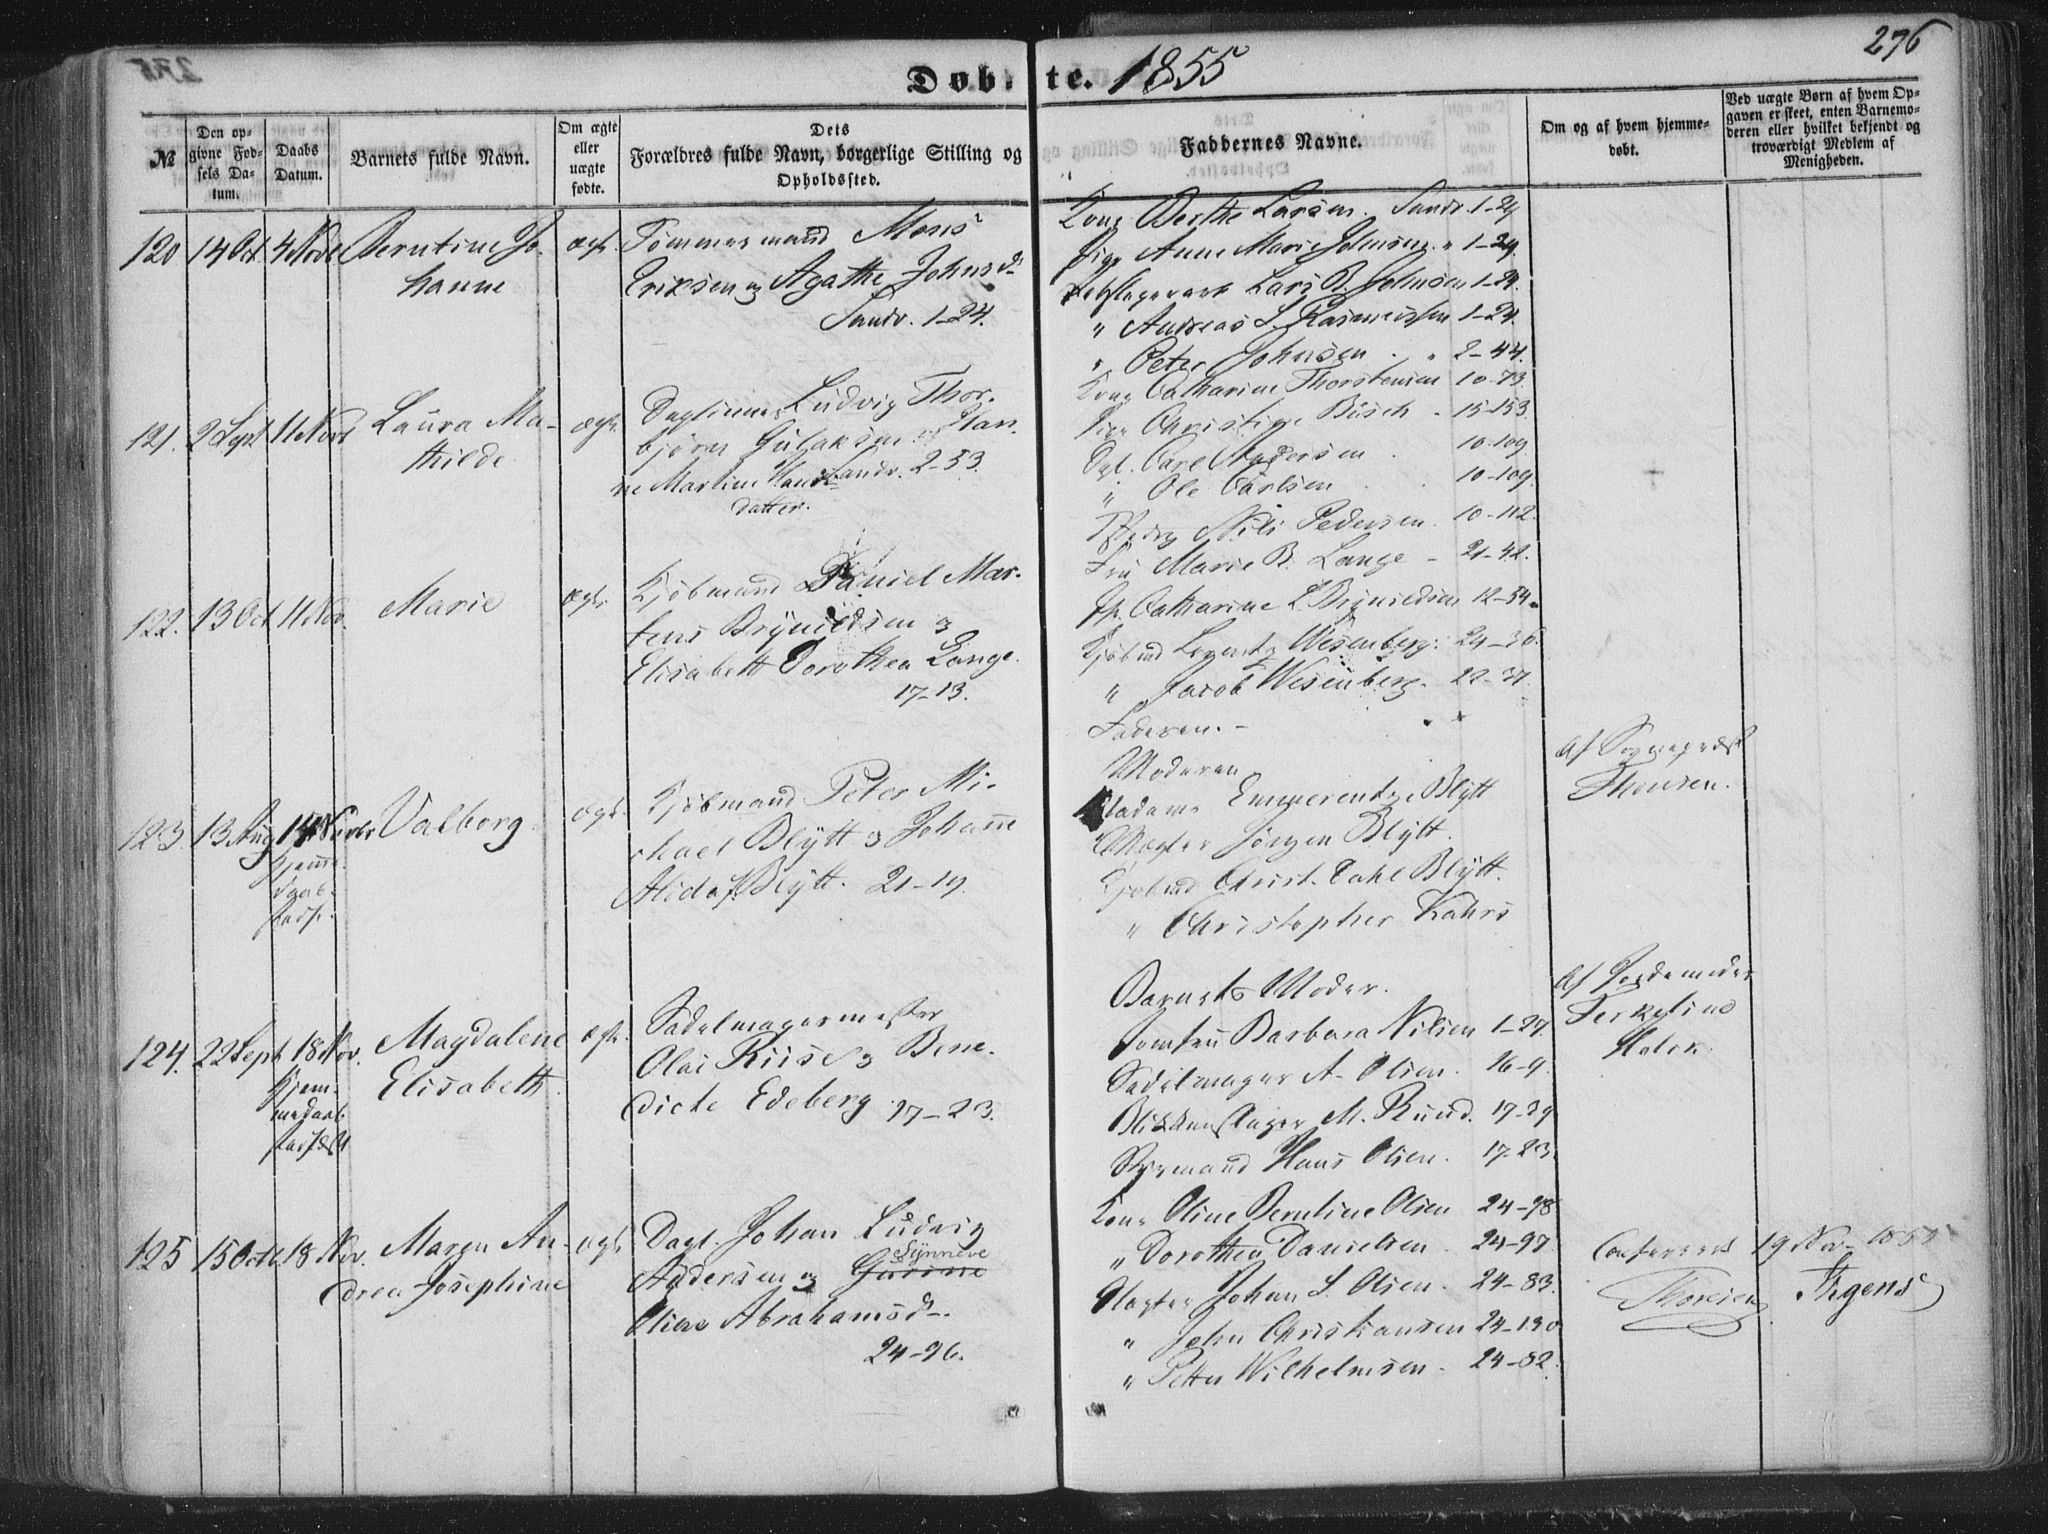 276
Døbte. 1855
№
Den opgivne Fødsels Datum.
Daabs Datum.
Barnets fulde Navn.
Om ægte eller uægte fødte.
Dets Forældres fulde Navn, borgerlige Stilling og Opholdssted.
Faddernes Navne.
Om og af hvem hjemmedøbt.
Ved uægte Børn af hvem Opgaven er skeet, enten Barnemoderen eller hvilket bekjendt og troværdigt Medlem af Menigheden.
120 14 Oct 4 Novb Berntine Jo-
hanne
ægte
Tømmermand Mons
Eriksen og Agathe Johnsd.
Sandv. 1-24.
Kone Berthe Larsen. Sandv. 1-29
Pige Anne Marie Johnsen " 1-29.
Lars B. Johnsen 1-24.
" Andreas L. Rasmussen 1-24.
" Peter Johnsen . " 2-44.
121. 2 Sept 11 Novb Laura Ma-
thilde
ægte
Ludvig Thor-
bjørn Gulaksen og Han-
ne Martine Hans Sandv. 2-53.
datter.
Kone Catharine Thorstensen 10-73.
Pige Christine Büsch - 15-153.
Carl Andersen . 10-109
" Ole Carlsen . 10-109.
Nils Pedersen. 10-112.
122. 13 Oct 11 Nov. Marie
ægte
Kjøbmand Daniel Mar-
tens Brynildsen og
Elisabeth Dorothea Lange.
17-13.
Fru Marie B. Lange - 21-42.
Catharine L Brynildsen 12-54.
Kjøbmd Lorentz Wesenberg. 24-36.
" Jacob Wesenberg. 22-31.
Faderen. -
123 13 Aug 14 Novbr Valborg.
Hjemme-
daab
stadf.
ægte
Kjøbmand Peter Mi-
chael Blytt og Johanne
Alida f. Blytt. 21-19.
Moderen
Madame Emmerentze Blytt
Mægler Jørgen Blytt.
Kjøbmd Christ. Dahl Blytt.
" Christopher Kahrs
Af Sognepræst
Thonsen.
124. 22 Sept 18 Nov. Magdalene
Elisabeth.
Hjem-
medaab
stadfæst
ægte
Sadelmagermester
Olai Riise og Bene-
dicte Edeberg. 17-23.
Barnets Moder.
Jomfru Barbara Nilsen 1-29.
Sadelmager A. Olsen. 16-9.
Blikkenslager M. Ruud. 17-29
Styrmand Hans Olsen. 17-23.
Af Jordemoder
Holck.
125 15 Octb 18 Nov. Maren An-
drea Josephine
ægte
Dagl. Johan Ludvig
Synneve
Andersen og Gurine
Oline Abrahamsd.
24-96.
Kone Oline Berntine Olsen 24-98
" Dorothea Danielsen. 24-97.
Slagter Johan S. Olsen. 24-83.
" John Christiansen 24-130
" Petter Wilhelmsen. 24-82.
Confereret 19 Nov 1855